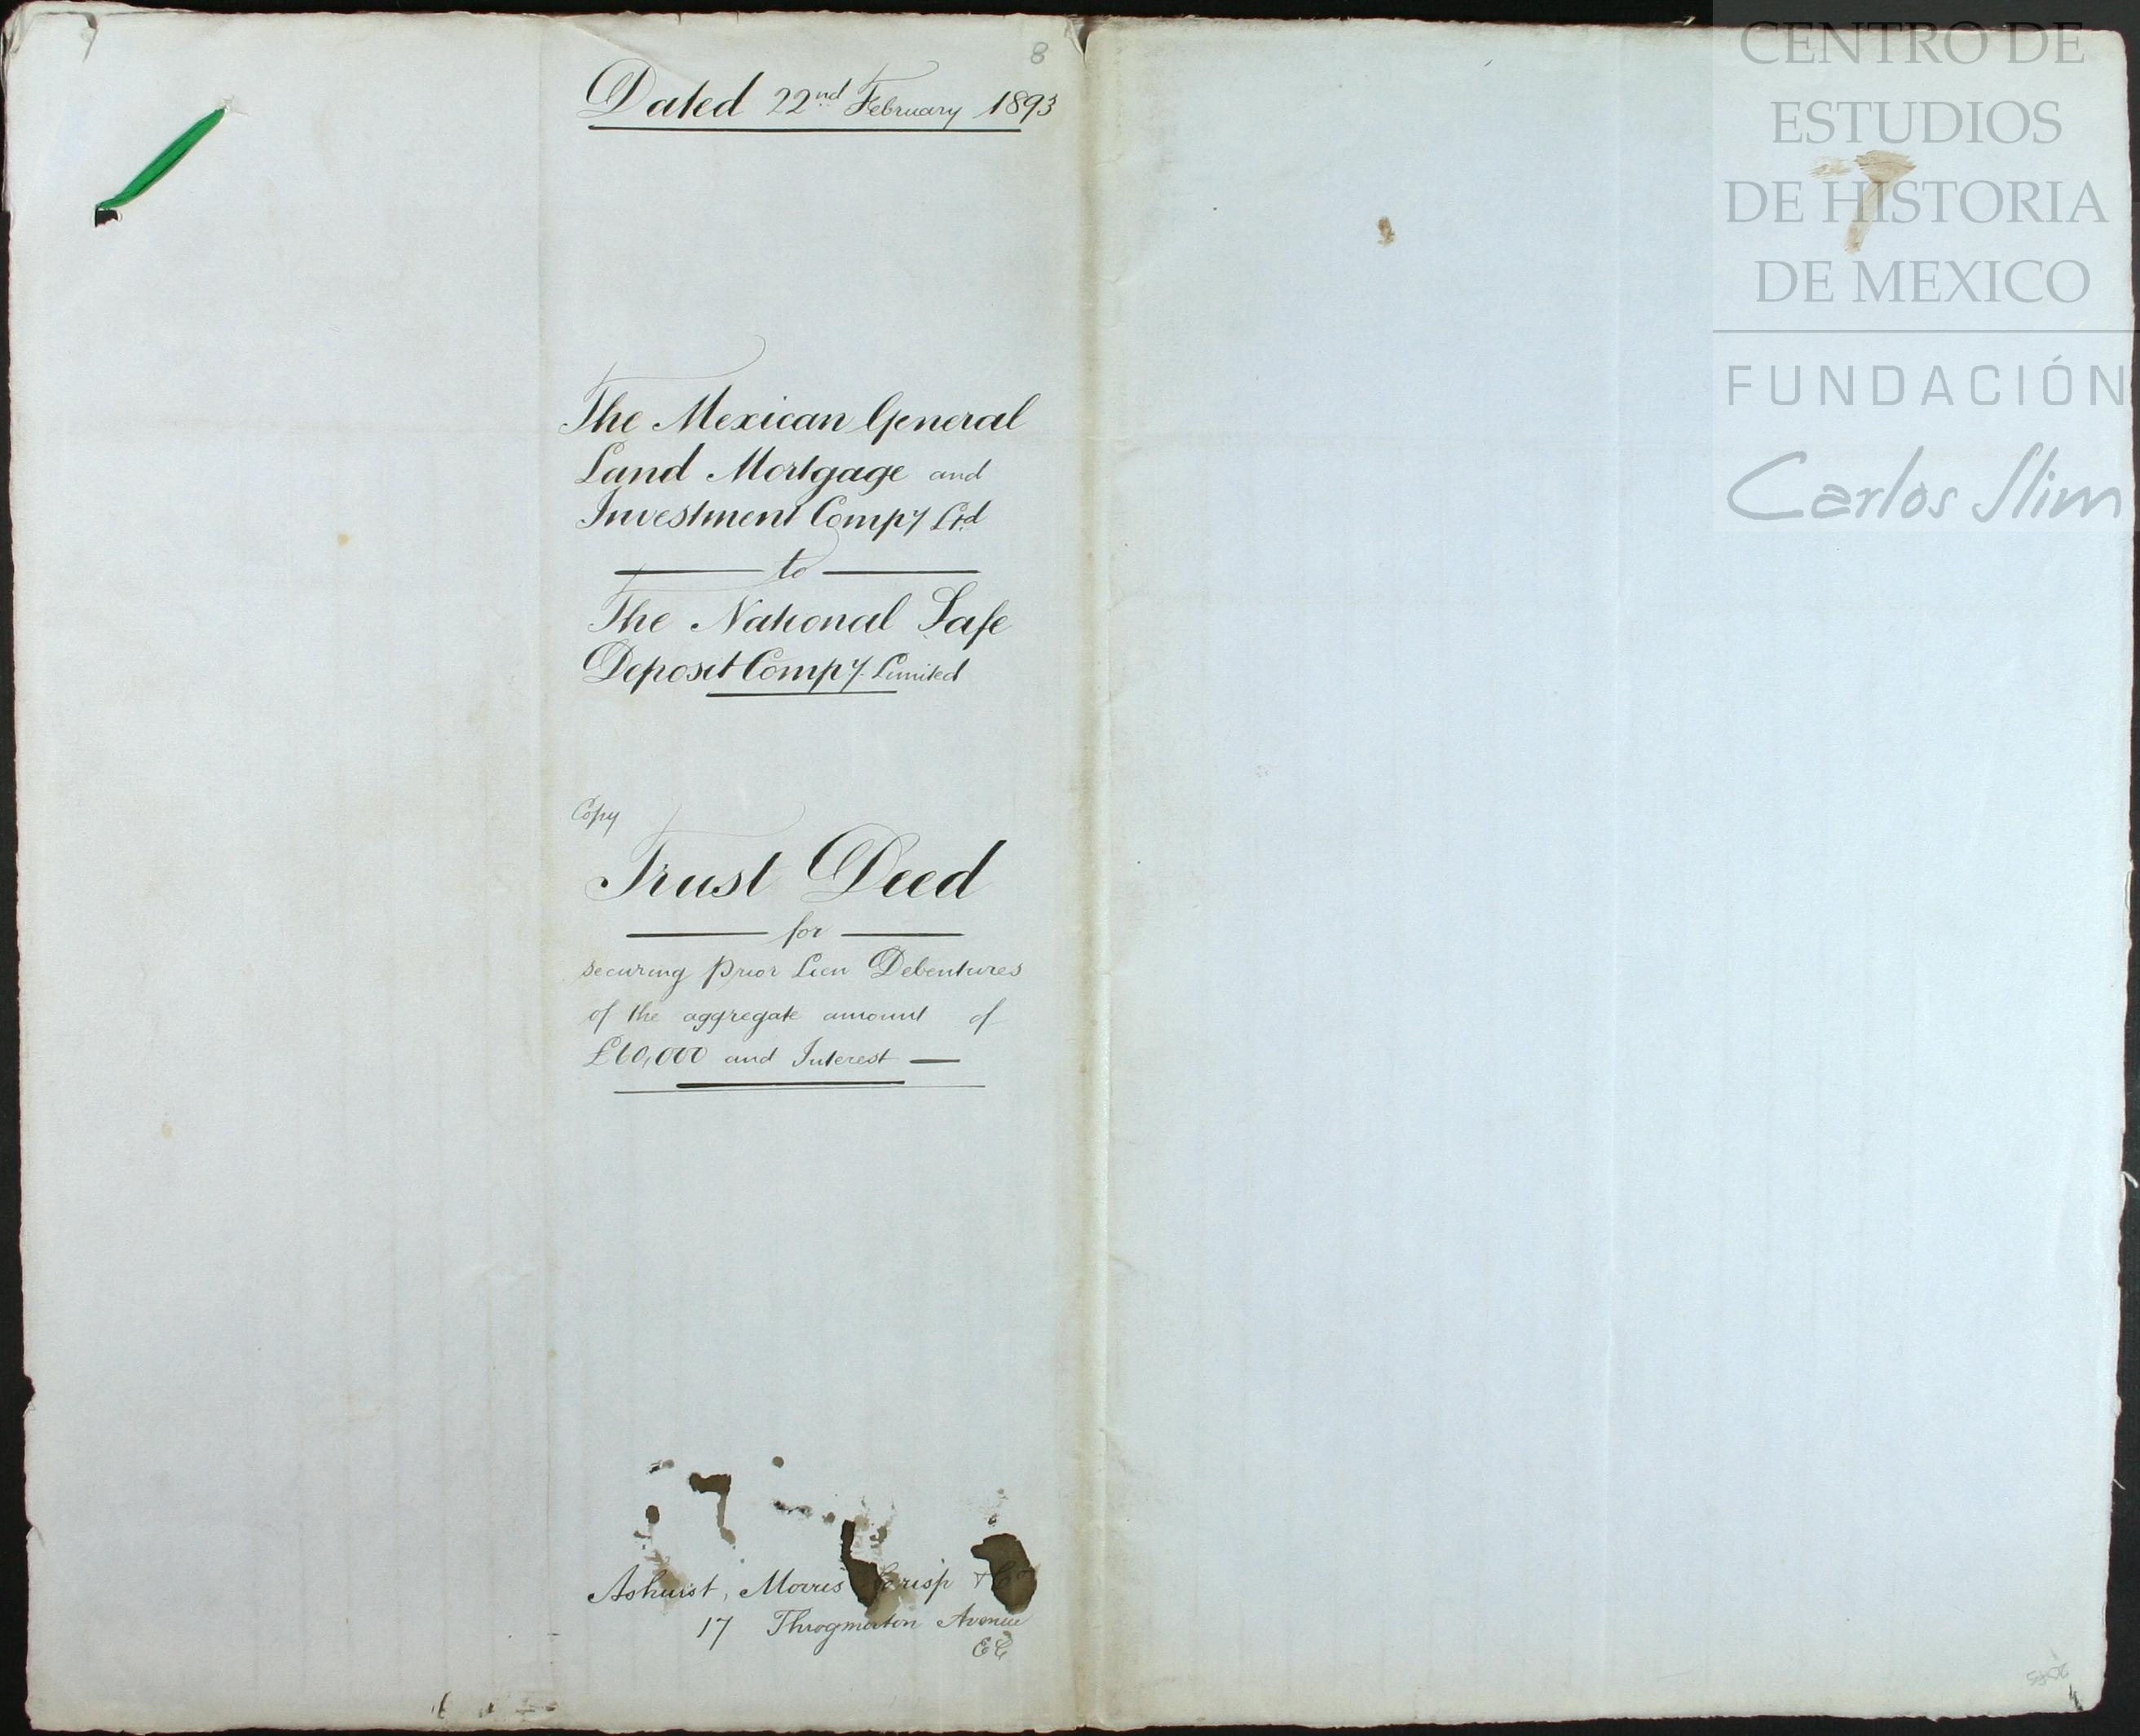 8
Dated 22nd February 1893
The Mexican General
Land Mortgage and
Investment Compy Ltd
to
The National Safe
Deposit Compy. Limited
Copy
Trust Deed
for
securing Prior Lien Debentures
of the aggregate amount of
£60,000 and Interest —
Ashurst, Morris Crisp & Co
17 Throgmorton Avenue
EC
CENTRO DE
ESTUDIOS
DE HISTORIA
DE MEXICO
FUNDACIÓN
Carlos Slim